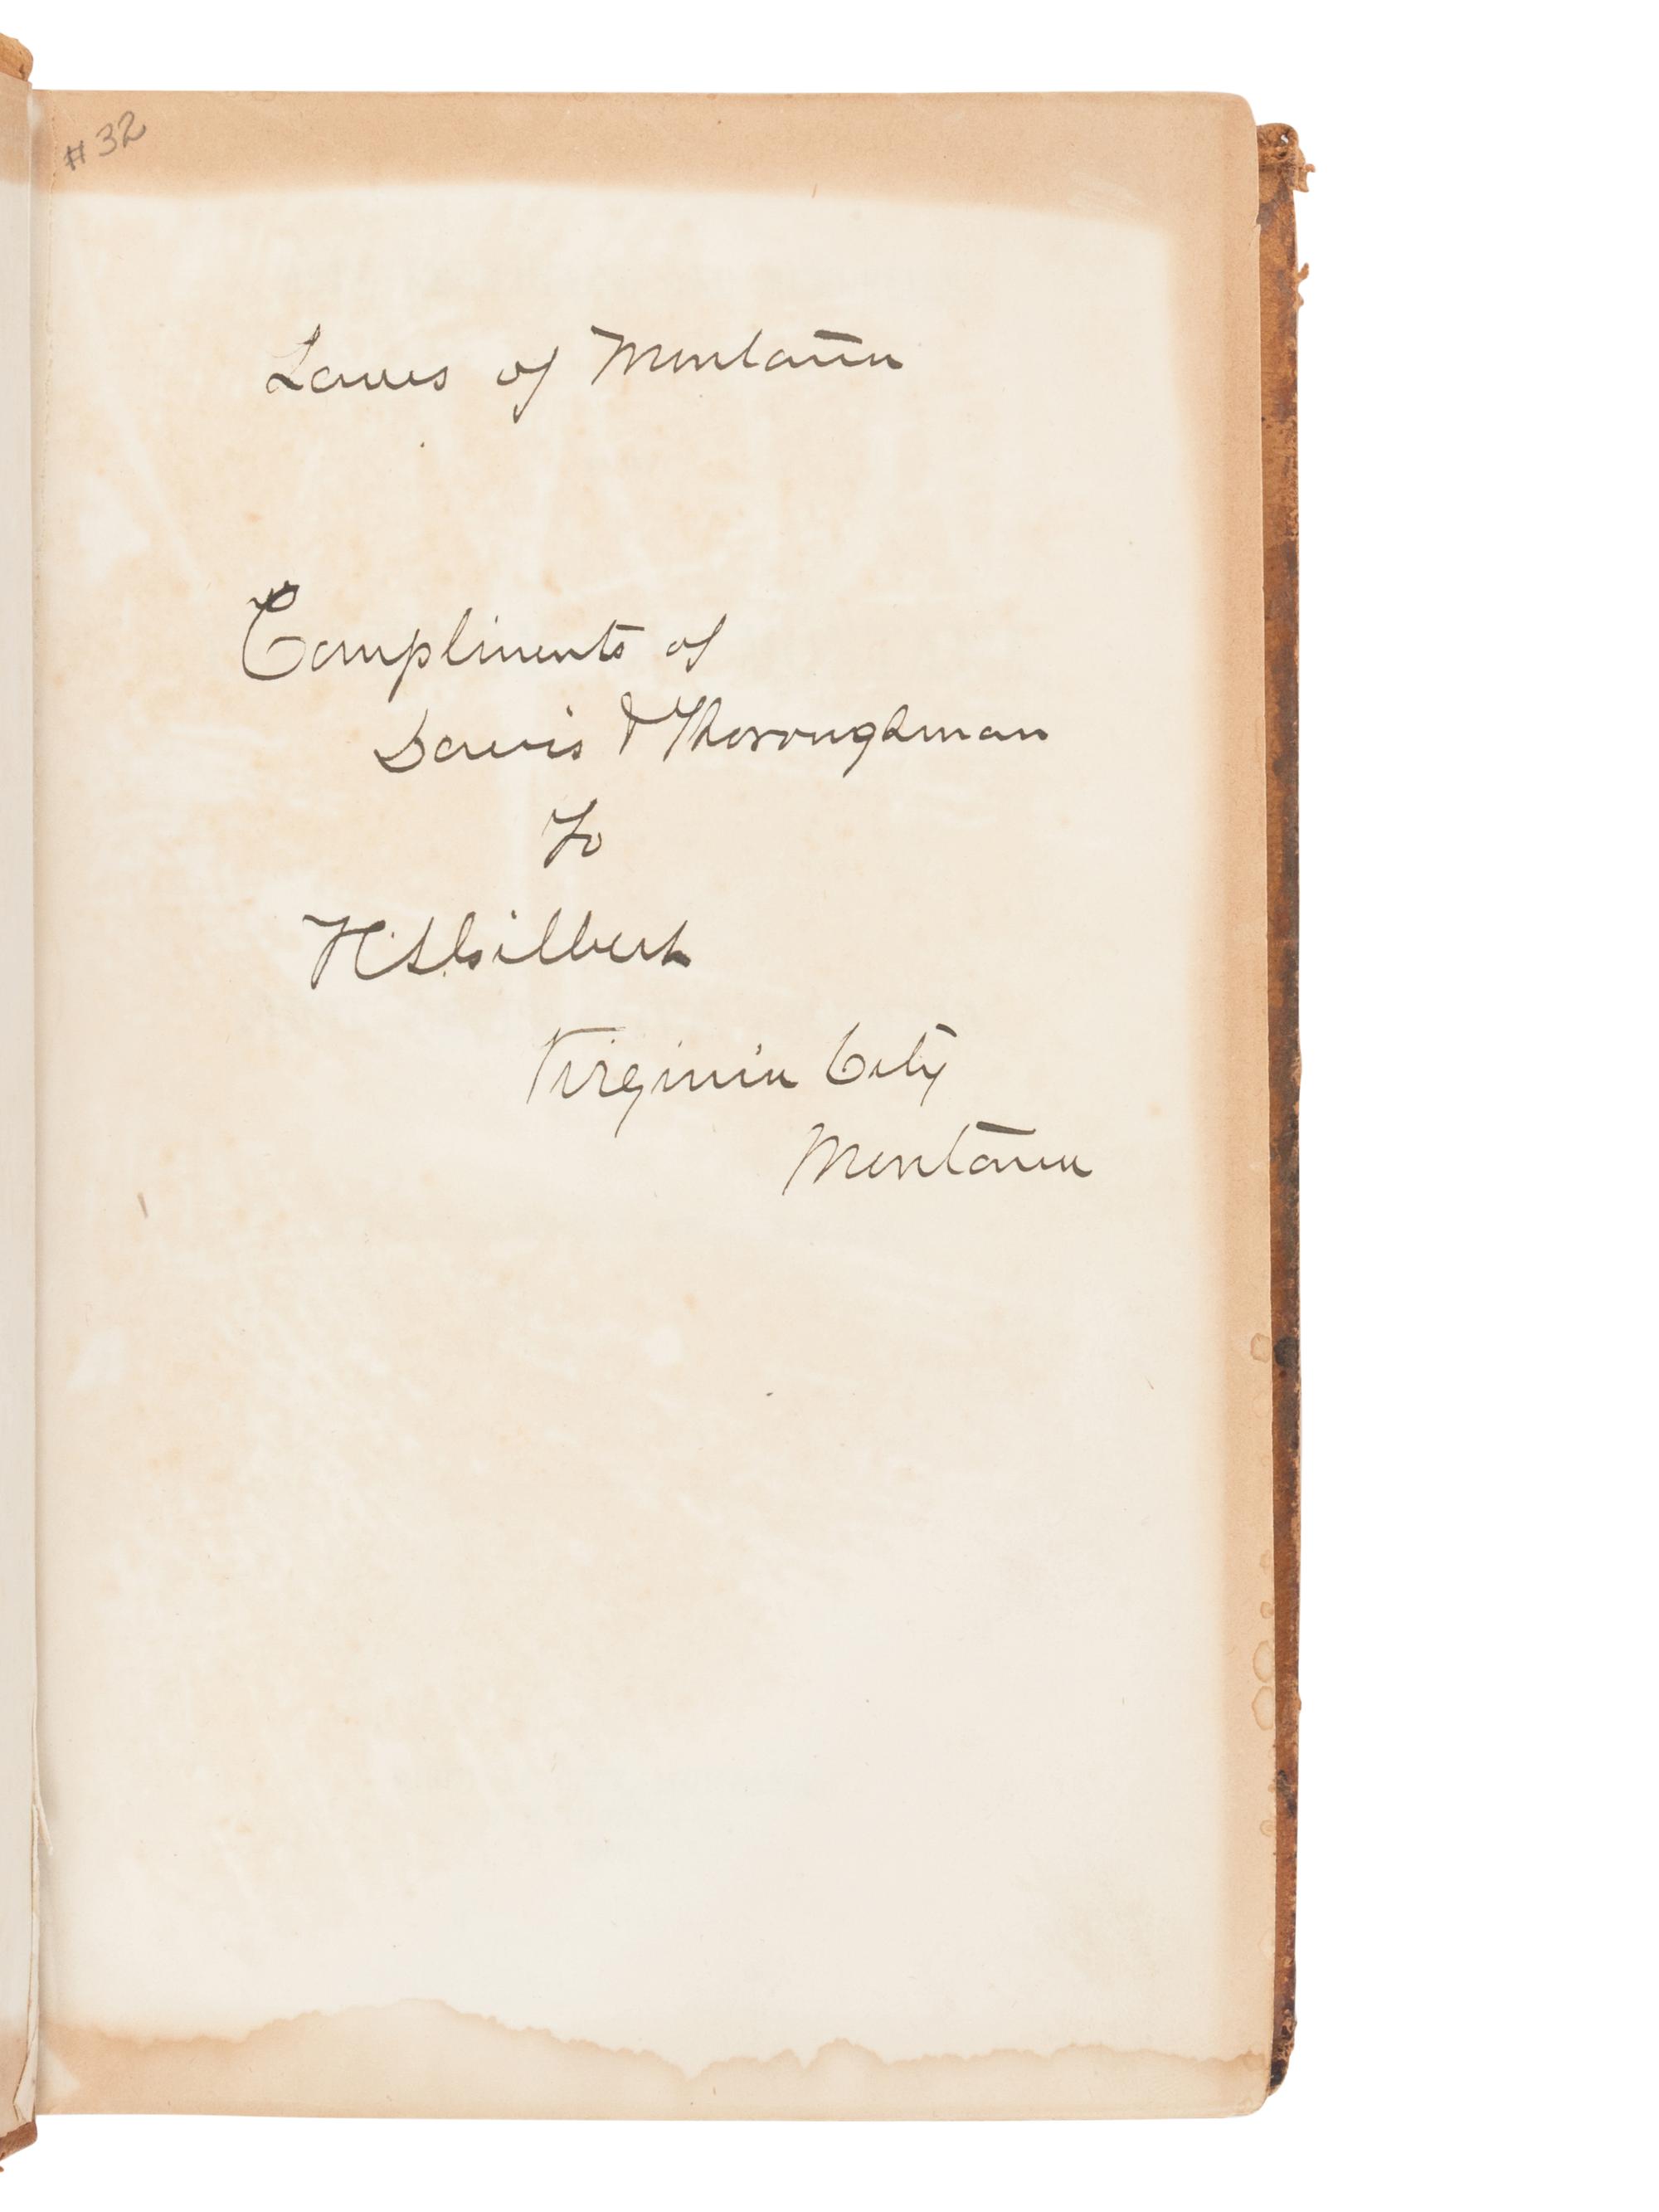 #32
Laws of Montana
Compliments of
Davis & Thoroughman
To
H S Gilbert
Virginia City
Montana